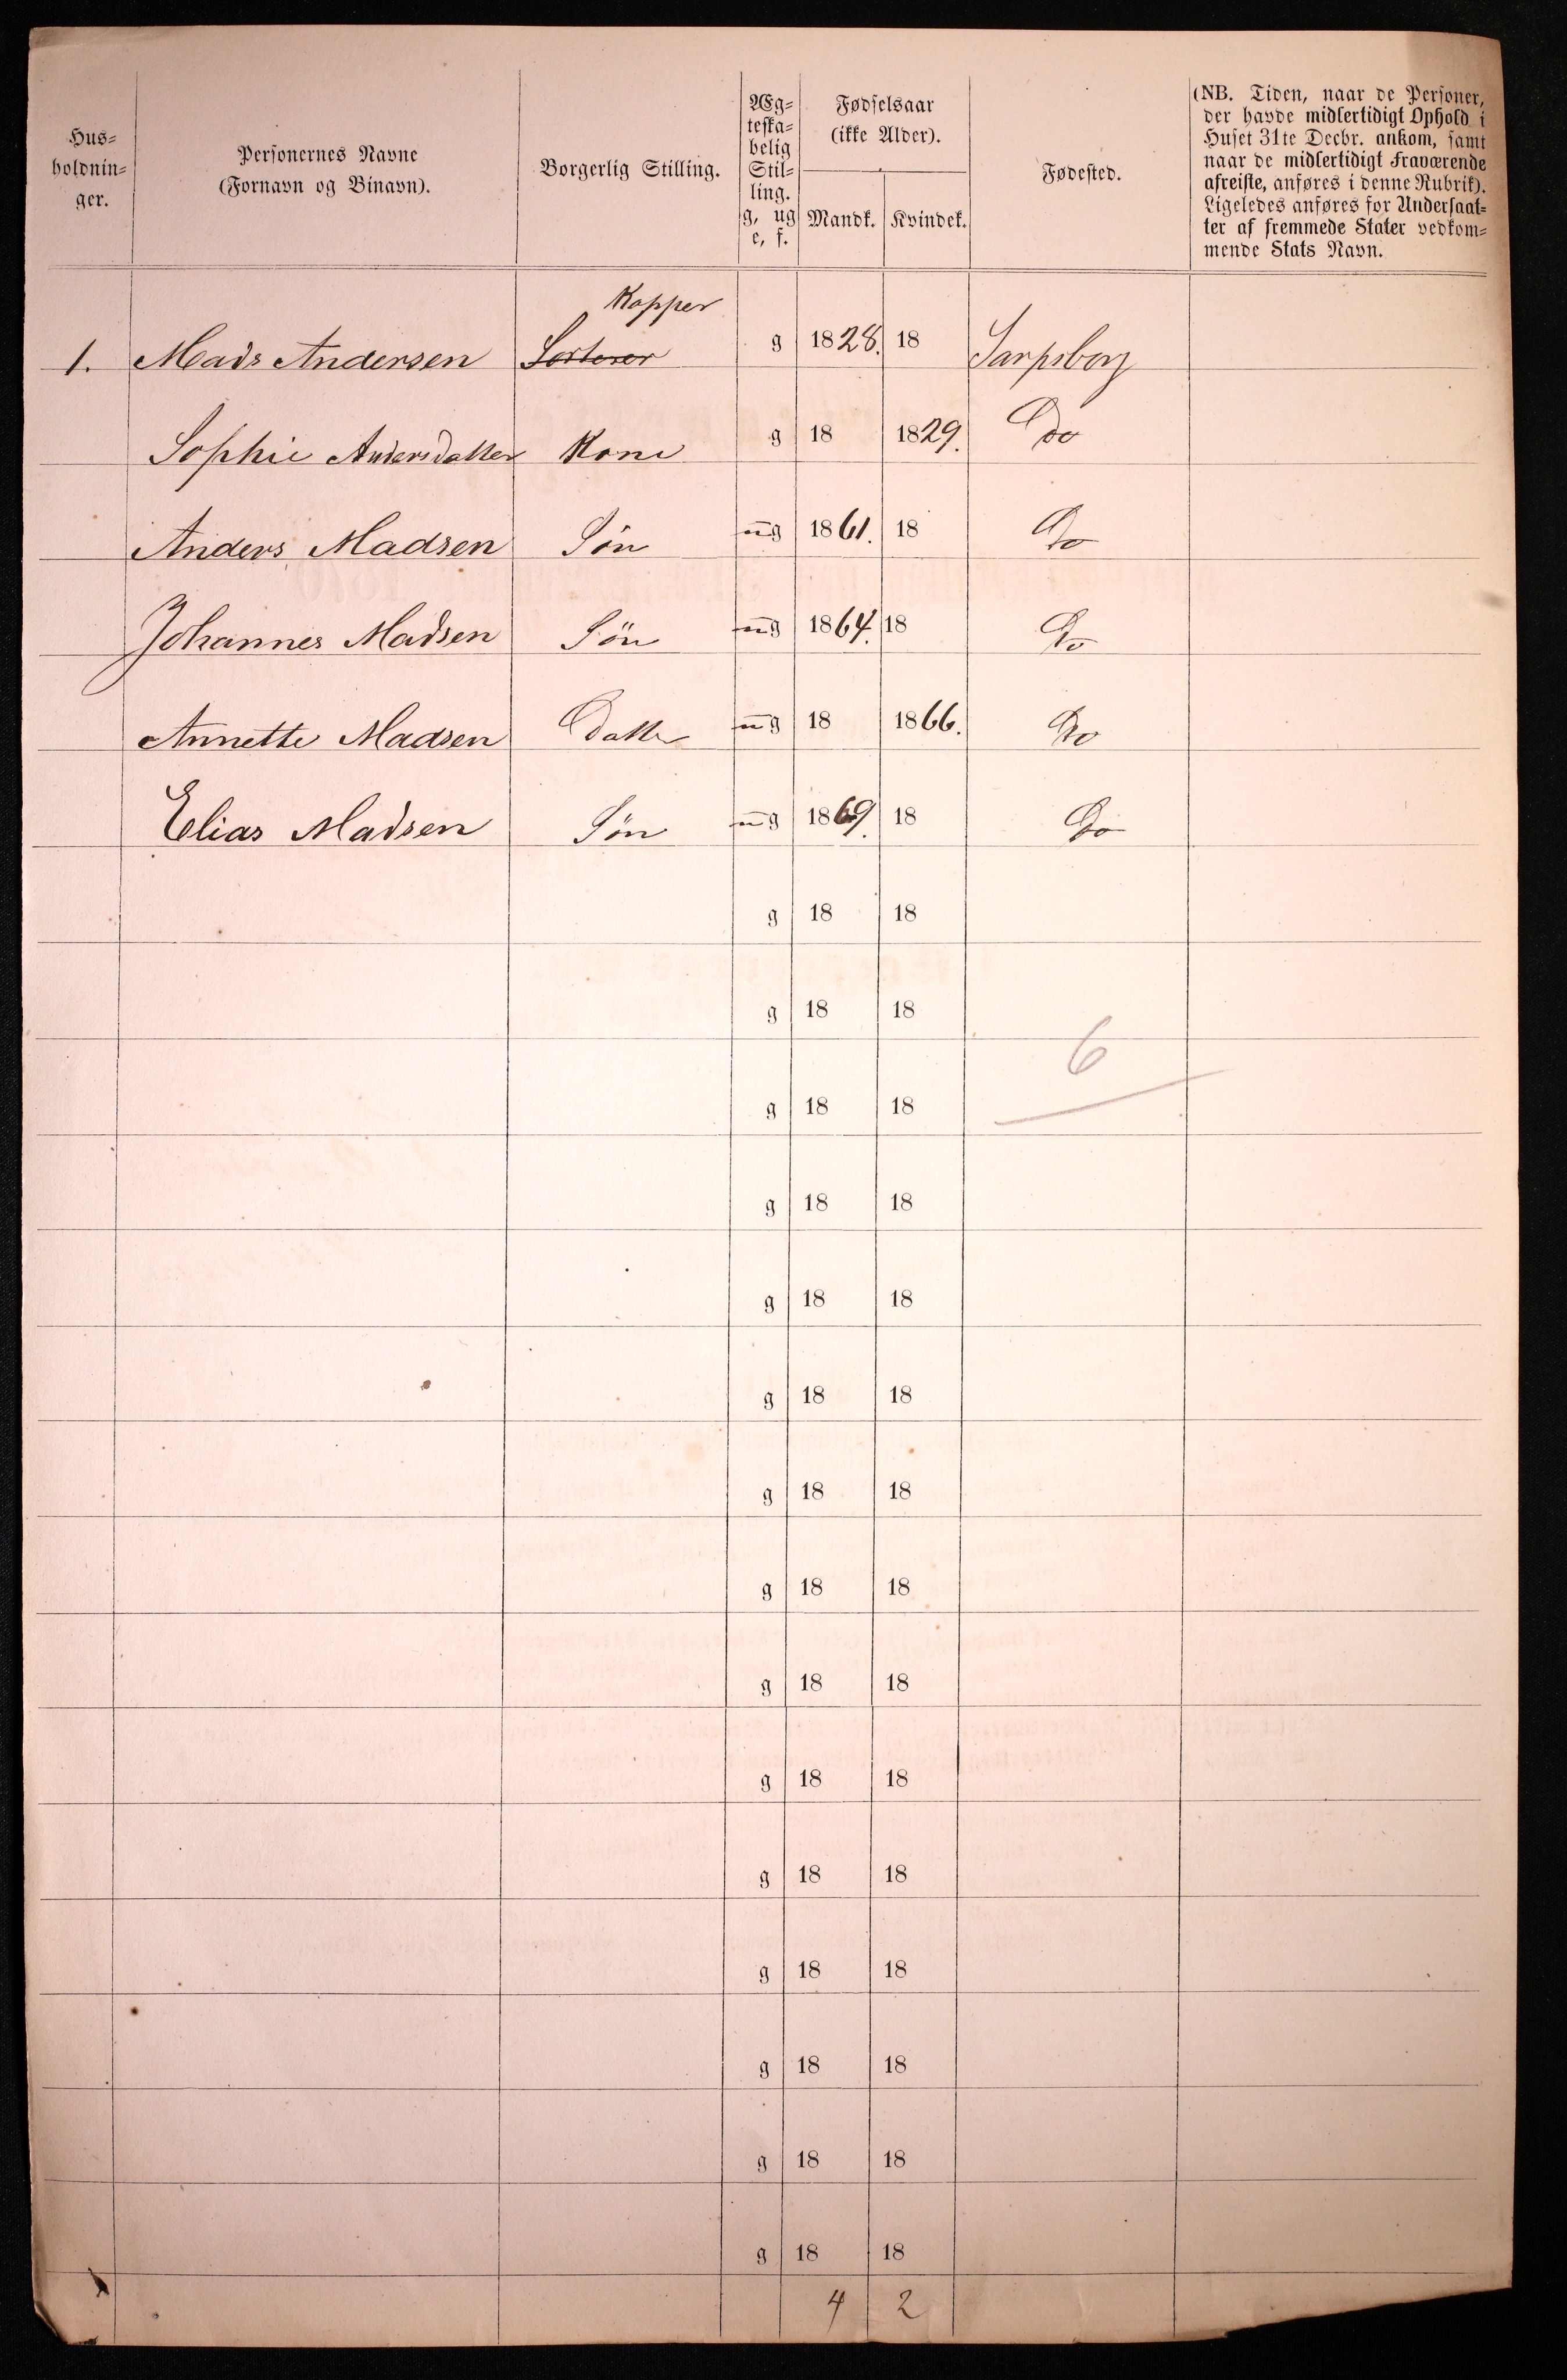 Hus-
holdnin-
ger.
Personernes Navne
(Fornavn og Binavn).
Borgerlig Stilling.
Æg-
teska-
belig
Stil-
ling.
g, ug
e, f.
Fødselsaar
(ikke Alder).
Mandk. Kvindek.
Fødested.
(NB. Tiden, naar de Personer,
der havde midlertidigt Ophold i
Huset 31te Decbr. ankom, samt
naar de midlertidigt Fraværende
afreiste, anføres i denne Rubrik).
Ligeledes anføres for Undersaat-
ter af fremmede Stater vedkom-
mende Stats Navn.
Kapper
1. Mads Andersen Sorterer g 1828. 18 Sarpsborg
Sophie Andersdatter Kone g 18 1829. Do
Anders Madsen Søn ug 1861. 18 Do
Johannes Madsen Søn ug 1864. 18 Do
Annette Madsen Datter ug 18 1866. Do
Elias Madsen Søn ug 1869. 18 Do
g 18 18
g 18 18
6
g 18 18
g 18 18
g 18 18
g 18 18
g 18 18
g 18 18
g 18 18
g 18 18
g 18 18
g 18 18
g 18 18
g 18 18
g 18 18
4 2